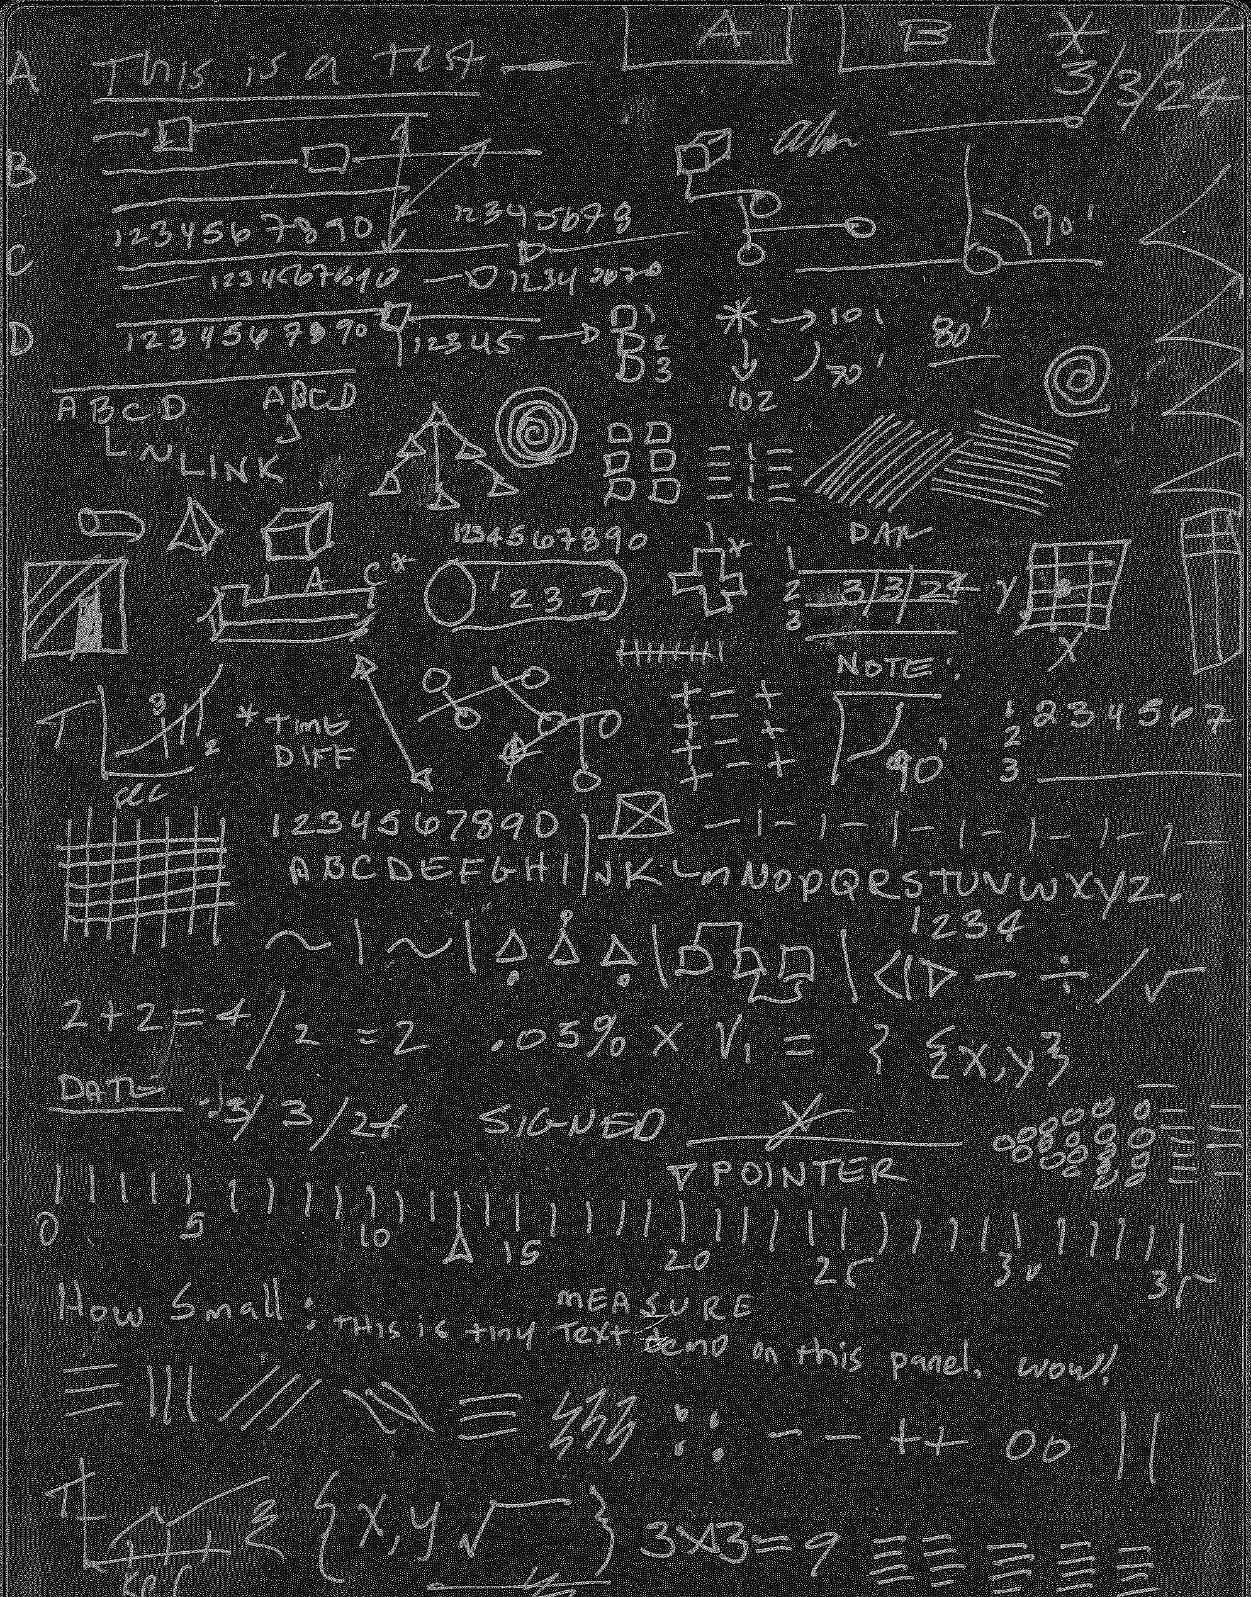 A B
A This is a test
3/3/24
B
1234567890 12345678
90'
C
1234567890 1234 5678
D 1234567890 12345 1 * 101
2 80'
3 70'
102
ABCD ABCD
LINK
1234567890 DATE
A C* 1 * 1
1 2 3 2 3/3/24 Y
3
X
NOTE:
T 3 * TIME 1 2 3 4 5 6 7
2 DIFF 2
90' 3
SEC
1234567890
ABCDEFGHI NK LMNOPQRSTUVWXYZ.
1234
÷ / √
2+2=4/2 =2 .05% X V1 = } {X,Y}
DATE: 3/3/24 SIGNED X
POINTER
0 5 10 15 20 25 30 35
MEASURE
How Small: THIS is tiny Text demo on this panel, wow!
T Σ {X,Y √ } 3x3=9